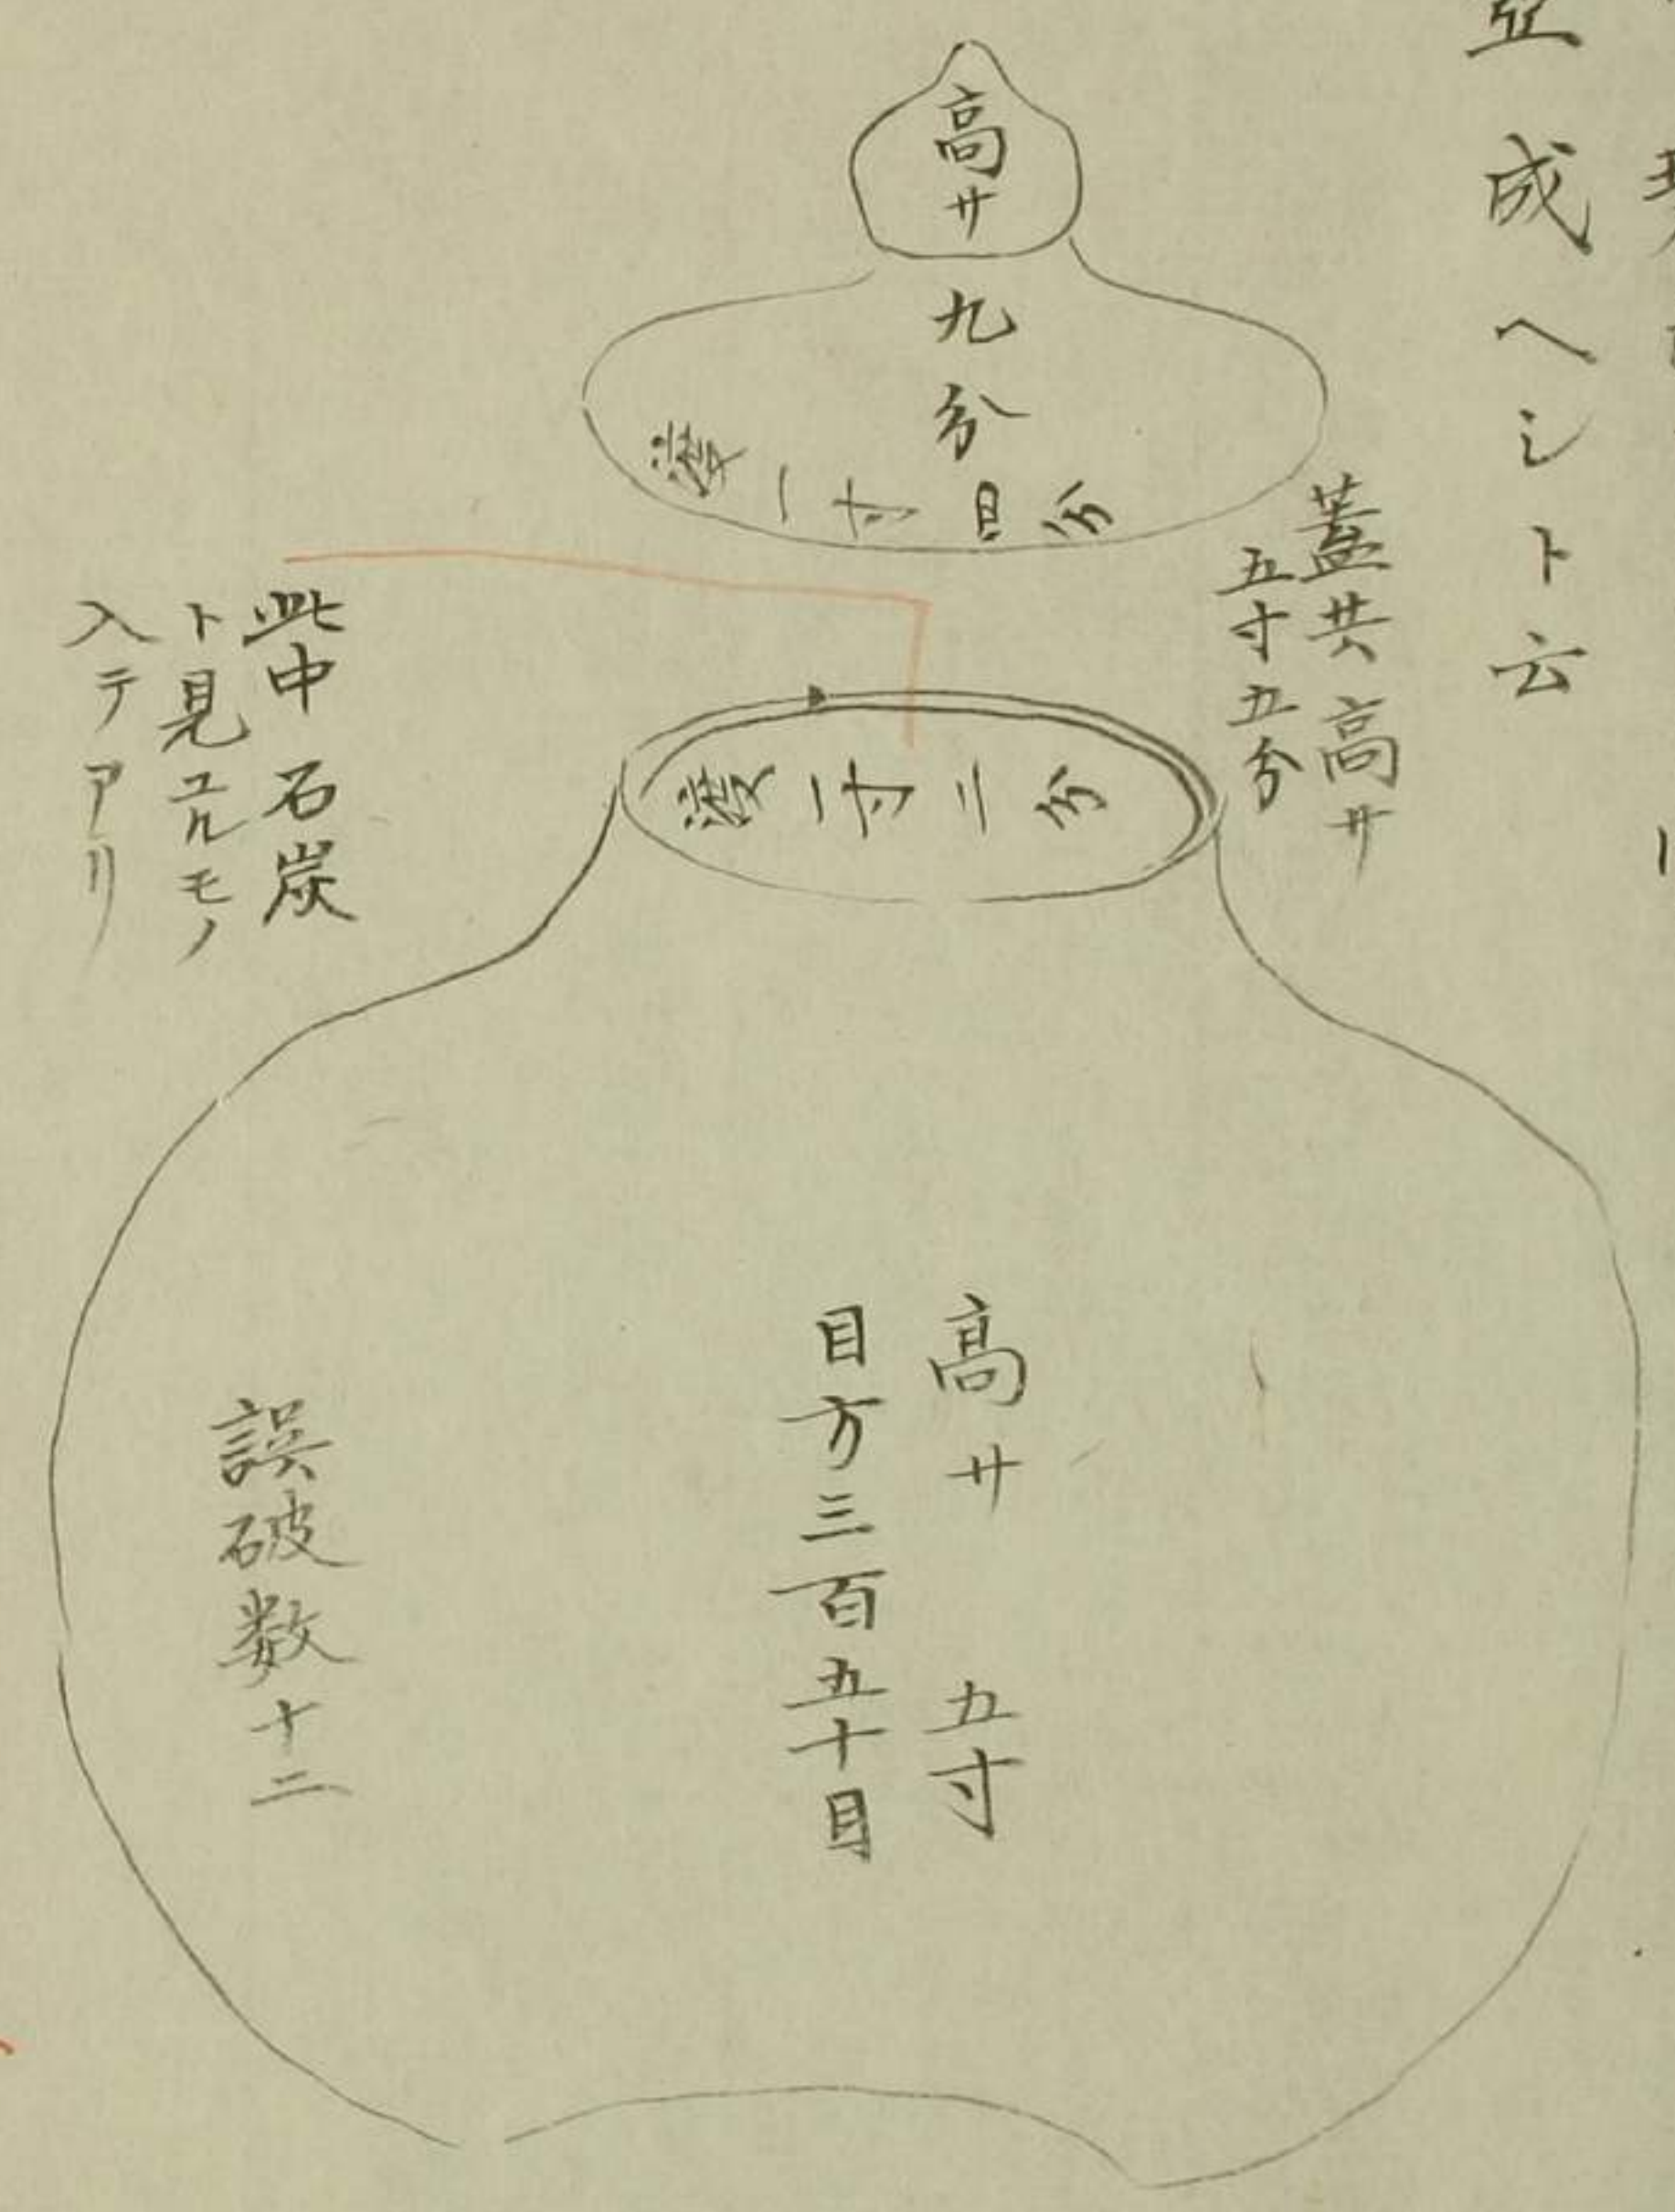 成ヘシト云
高サ九分
渡一寸四分
蓋共高サ
五寸五分
渡一寸二分
此中石炭
ト見ユルモノ
入テアリ
高サ 五寸
目方三百五十目
誤破数十二